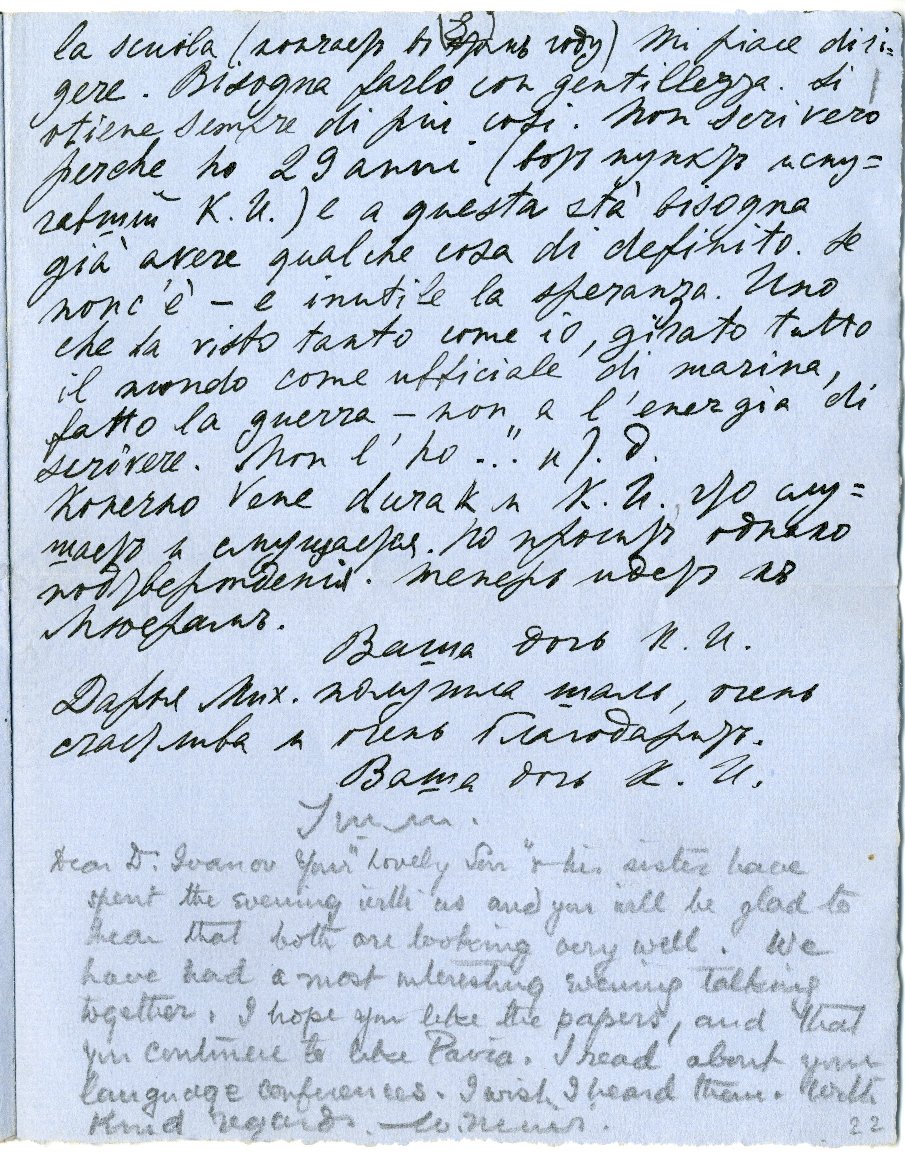 la scuola (кончает во 2 году) Mi piace diri=
gere. Bisogna farlo con gentillezza. Si
otiene sempre di piu cosi. Non scrivero
perche ho 29 anni (вот пункт испу=
гавшій К. И.) e a questa età bisogna
già avere qualche cosa di definito. Se
non c'è – e inutile la speranza. Uno
che ha visto tanto come io, girato tutto
il mondo come ufficiale di marina,
fatto la guerra – non a l'energia di
scrivere. Non l'ho..." и т. д.
Конечно Vene durak и К. И. что слу=
шает и смущается. Но просит однако
подтверждения. Теперь идет къ
Ваша дочь К. И.
Дарья Мих. получила шаль, очень
счастлива и очень благодарит.
Ваша дочь К. И.
Dear D. Ivanov Your "lovely Son" & his sister have
spent the evening with us and you will be glad to
hear that both are looking very well. We
have had a most interesting evening talking
together. I hope you like the papers, and that
you continue to like Pavia. I read about your
language conferences. I wish I heard them. With
kind regards.
22